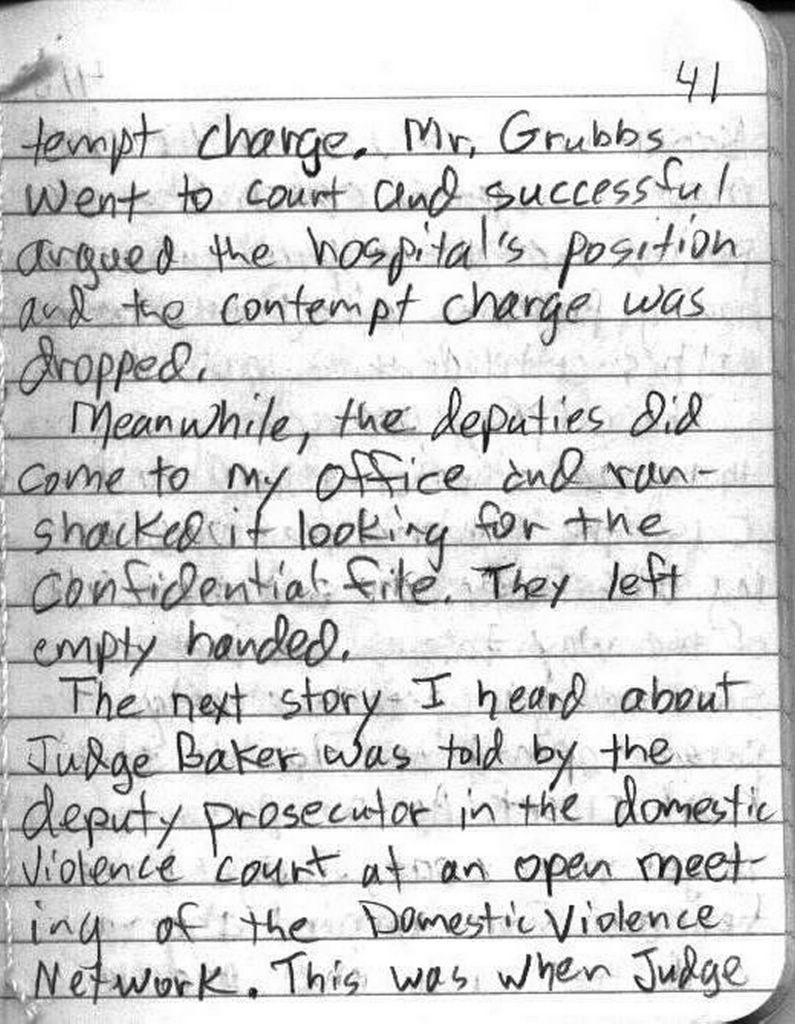 41
tempt charge. Mr. Grubbs
went to court and successful
argued the hospital's position
and the contempt charge was
dropped.
Meanwhile, the deputies did
come to my office and ran-
shacked it looking for the
confidential file. They left
empty handed.
The next story I heard about
Judge Baker was told by the
deputy prosecutor in the domestic
violence court at an open meet-
ing of the Domestic Violence
Network. This was when Judge